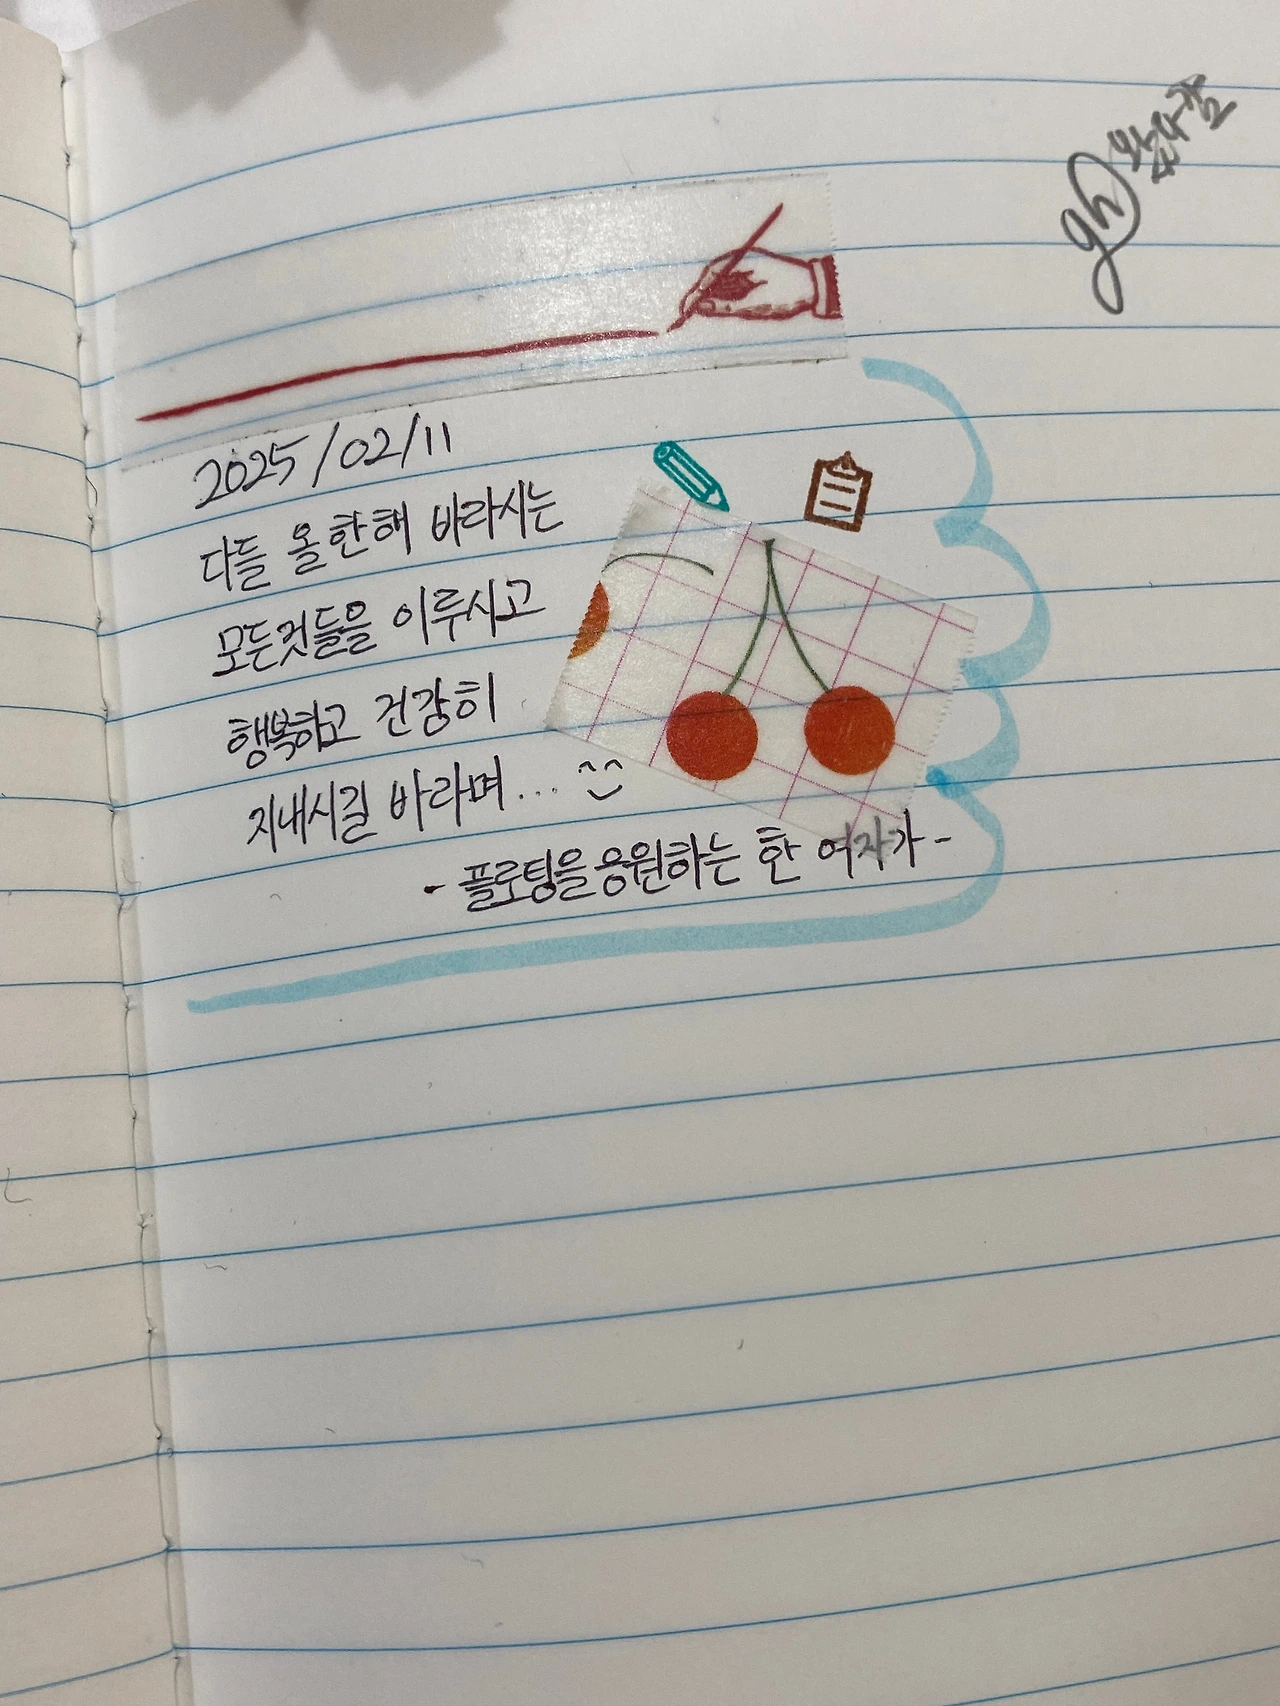 gh 왔다감
2025/02/11
다들 올 한해 바라시는
모든것들을 이루시고
행복하고 건강히
지내시길 바라며... ^^
- 플로팅을 응원하는 한 여자가 -